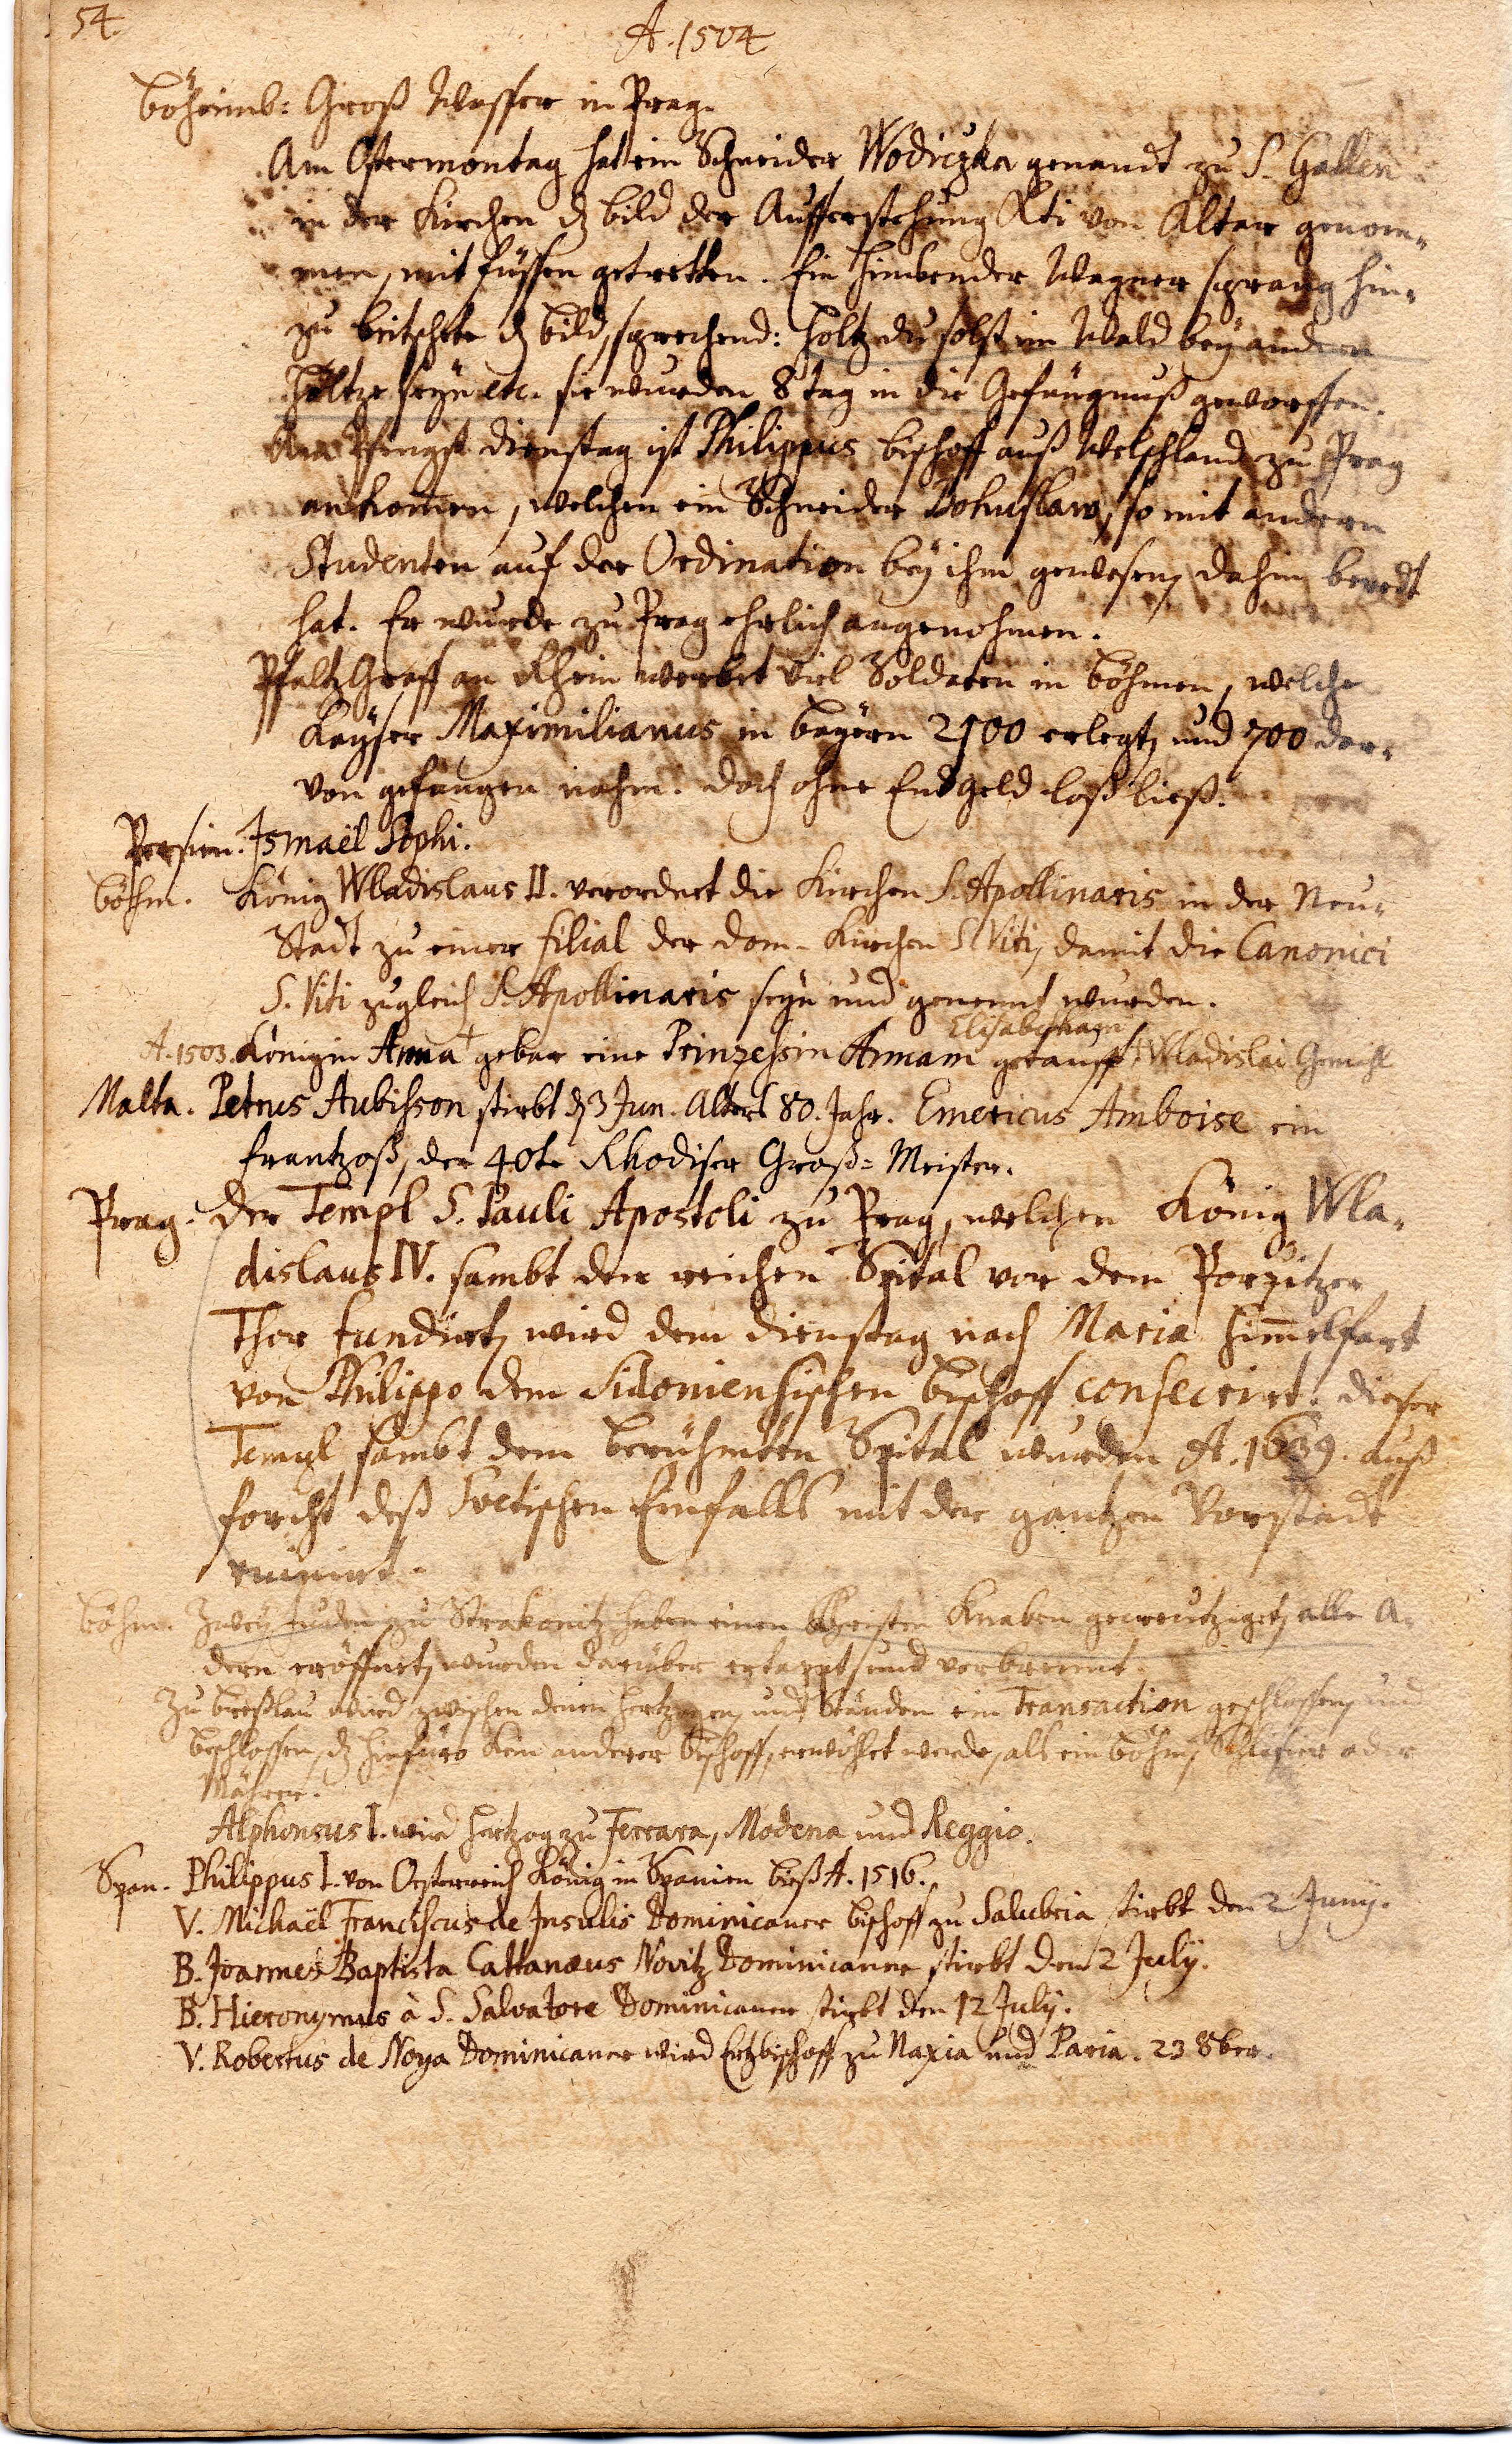 54.
A. 1504
böheimb: Groß Wasser in Prag.
Am Ostermontag hat ein Schneider Wodiczka genandt zu S. Gallen
in der Kirchen dz bild der Aufferstehung Xti von Altar genom-
men, mit füssen getretten. Ein hinkender Wagner sprang hin-
zu beitschete dz bild, sprechend: holtz du solst im Wald bey andern
Holtze seyn etc. sie wurden 8 tag in die Gefängnuß geworffen.
Am Pfingst dienstag ist Philippus bischoff auß Welschland zu Prag
ankomen, welchen ein Schneider Bohuslaw, so mit andern
Studenten auf der Ordination bey ihm gewesen, dahin beredt
hat. Er wurde zu Prag ehrlich angenohmen.
Pfaltz Graff an Rhein werbet viel Soldaten in böhmen, welche
Kayser Maximilianus in bayern 2500 erlegt, und 700 dar-
von gefangen nahm. doch ohne Endgeld loß ließ.
Persien. Ismaël Sophi.
böhm. König Wladislaus II. verordnet die Kirchen S. Apollinaris in der Neu-
Stadt zu einer filial der dom-Kirchen S. Viti, damit die Canonici
S. Viti zugleich S. Apollinaris seyn und genennt wurden.
Elisabetham
A. 1503. Königin Anna † gebar eine Prinzessin Annam getaufft Wladislai Gemahl
Malta. Petrus Aubisson stirbt dz 3 Jun. Alters 80. Jahr. Emericus Amboise ein
frantzoß, der 40te Rhodiser Groß-Meister.
Prag. der Templ S. Pauli Apostoli zu Prag, welchen König Wla-
dislaus IV. sambt den reichen Spital vor dem Porzitzer
Thor fundirt, wird dem dienstag nach Maria himmelfart
von Philippo dem Sidoniensischen bischoff consecrirt. dieser
Templ sambt dem berühmten Spital wurden A. 1639. auß
forcht deß Svetischen Einfalls mit der gantzen Vorstadt
ruinirt.
böhm. Zwey Juden zu Strakonitz haben einen Christen Knaben gecreutziget, alle A-
dern eröffnet, wurden darüber ertappt, und verbrennt.
Zu breßlau wird zwischen denen hertzogen, und Ständen ein Transaction geschlossen, und
beschlossen, dz hinfüro kein anderer bischoff, erwöhlet werde, als ein böhm, Schlesier oder
Mährer.
Alphonsus I. wird hertzog zu Ferrara, Modena und Reggio.
Span. Philippus I. von Oesterreich König in Spanien bieß A. 1516.
V. Michaël Franciscus de Insulis Dominicaner bischoff zu Salubria stirbt den 2 Junij.
B. Joannes Baptista Cattanæus Novitz Dominicaner stirbt den 2 July.
B. Hieronymus à S. Salvatore Dominicaner stirbt den 12 July.
V. Robertus de Noya Dominicaner wird Ertzbischoff zu Naxia und Paria. 23 8ber.